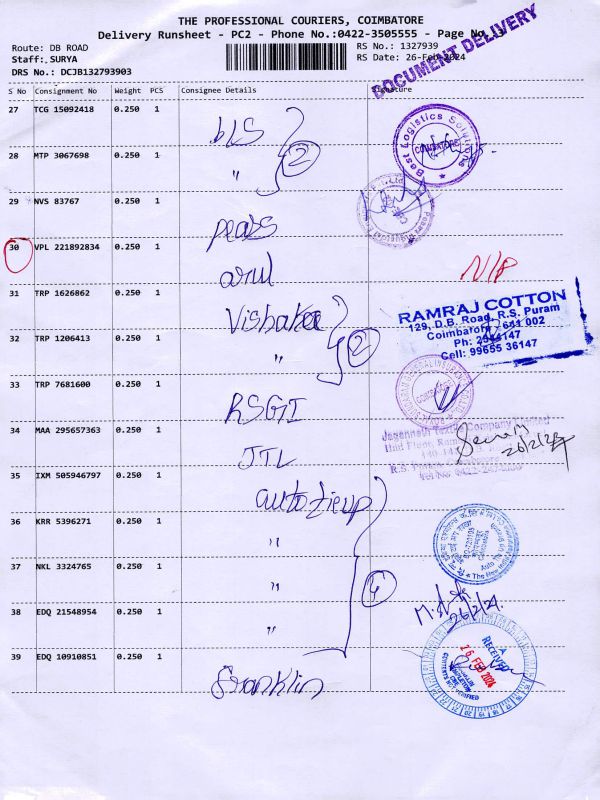 THE PROFESSIONAL COURIERS, COIMBATORE
Delivery Runsheet - PC2 - Phone No.:0422-3505555 - Page No. 3
Route: DB ROAD
Staff: SURYA
DRS No.: DCJB132793903
RS No.: 1327939
RS Date: 26-Feb-2024
DOCUMENT DELIVERY
S No Consignment No Weight PCS Consignee Details Signature
27 TCG 15092418 0.250 1 bLS
Best Logistics Solutions
COIMBATORE
28 MTP 3067698 0.250 1 "
2
29 NVS 83767 0.250 1 pears
30 VPL 221892834 0.250 1 arul
N/P
31 TRP 1626862 0.250 1 Vishakaa
RAMRAJ COTTON
129, D.B. Road, R.S. Puram
Coimbatore - 641 002
Ph: 2544147
Cell: 99655 36147
32 TRP 1206413 0.250 1 "
2
33 TRP 7681600 0.250 1 RSGI
34 MAA 295657363 0.250 1 JTL
26/2/24
35 IXM 505946797 0.250 1 autotieup
36 KRR 5396271 0.250 1 "
37 NKL 3324765 0.250 1 "
4
38 EDQ 21548954 0.250 1 "
26/2/24
39 EDQ 10910851 0.250 1 Franklin
RECEIVED
26 FEB 2024
CONTENTS NOT VERIFIED